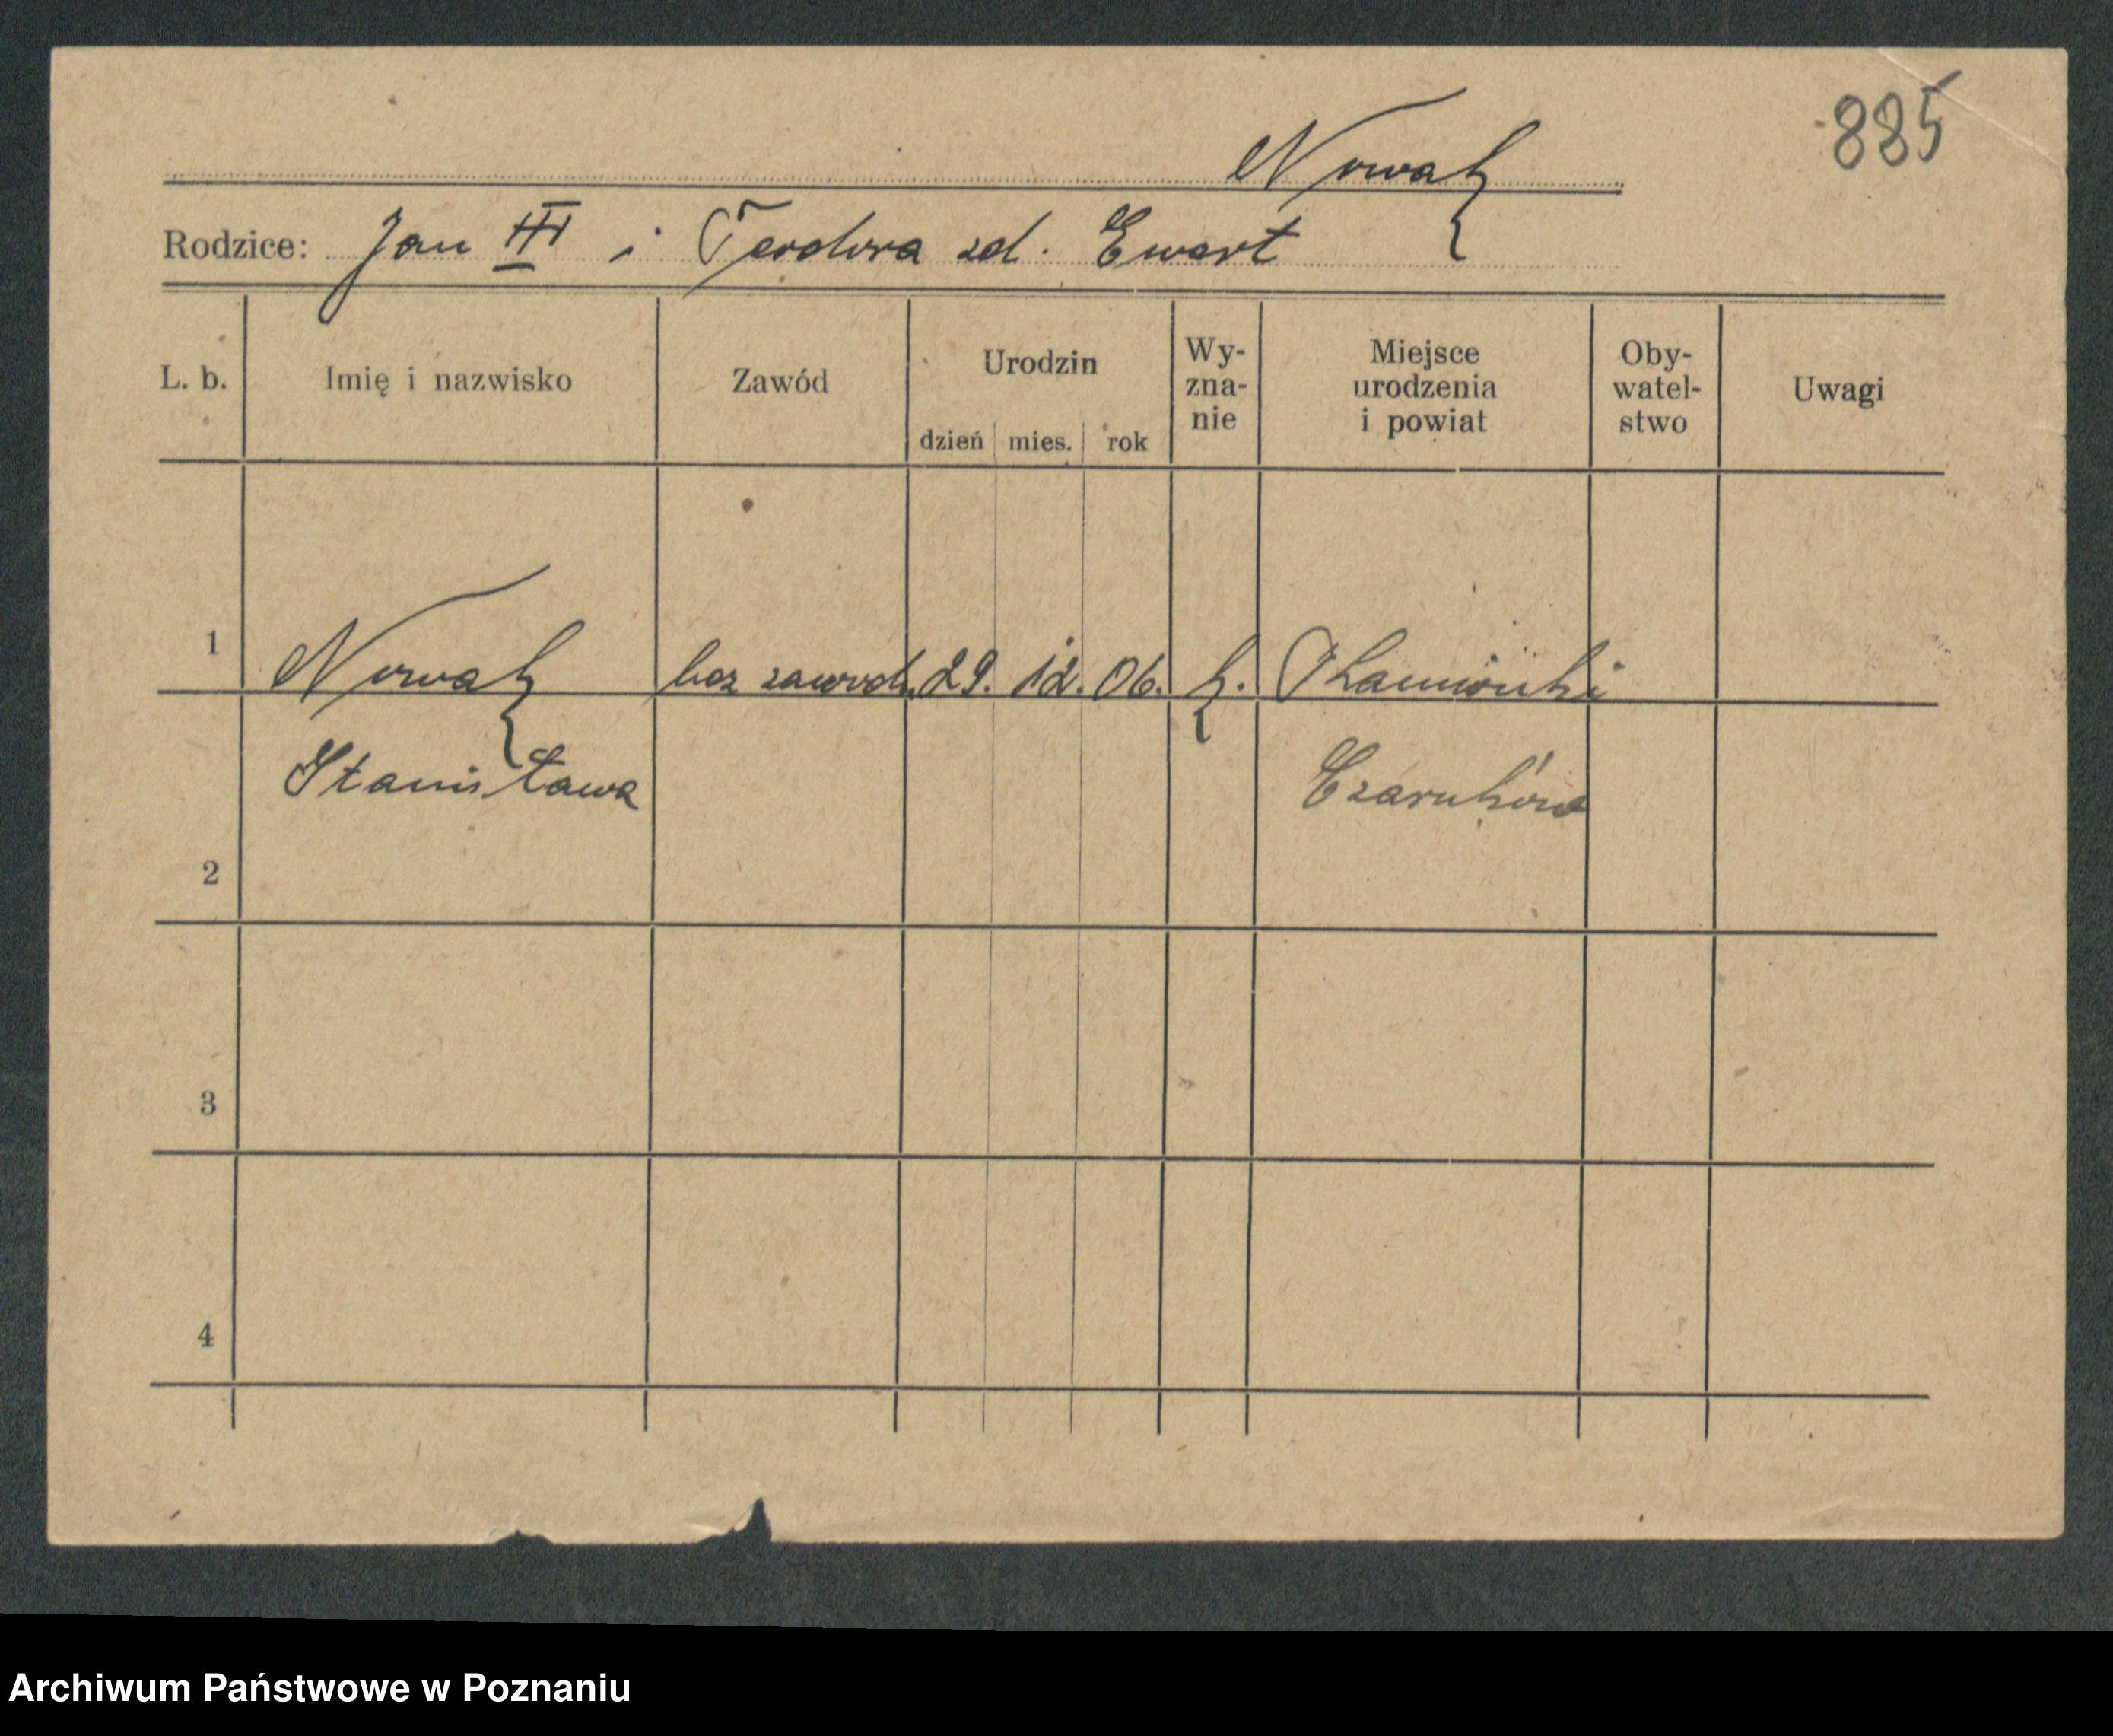 885
Nowak
Rodzice: Jan III i Teodora zd. Ewert
L. b.
Imię i nazwisko
Zawód
Urodzin
dzień mies. rok
Wy-
zna-
nie
Miejsce
urodzenia
i powiat
Oby-
watel-
stwo
Uwagi
1 Nowak bez zawod. 29. 12. 06. k.
Stanisława Czarnków
2
3
4
Archiwum Państwowe w Poznaniu